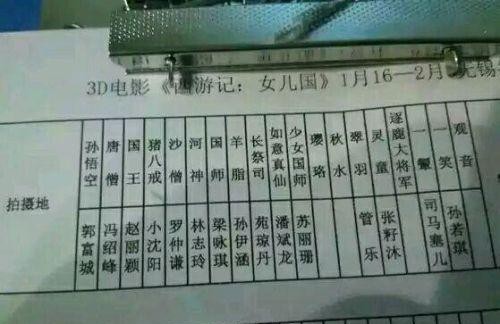 3D电影《西游记：女儿国》1月16—2月 无锡
拍摄地
孙悟空 唐僧 国王 猪八戒 沙僧 河神 国师 羊脂 长祭司 如意真仙 少女国师 璎珞 秋水 翠羽 灵童 逐鹿大将军 一颦 一笑 观音
郭富城 冯绍峰 赵丽颖 小沈阳 罗仲谦 林志玲 梁咏琪 孙伊涵 苑琼丹 潘斌龙 苏丽珊 管乐 张籽沐 司马塞儿 孙若琪